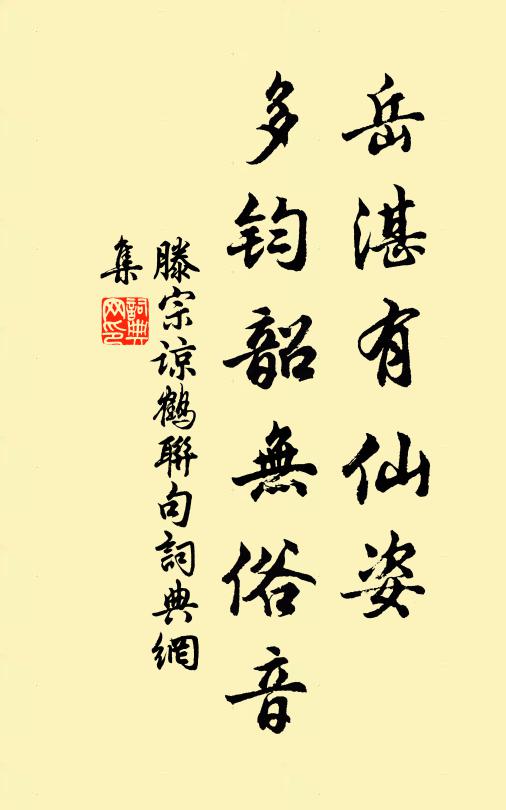 岳湛有仙姿
多鈞韶無俗音
滕宗諒鶴聯句詞典網
集
詞典
网印